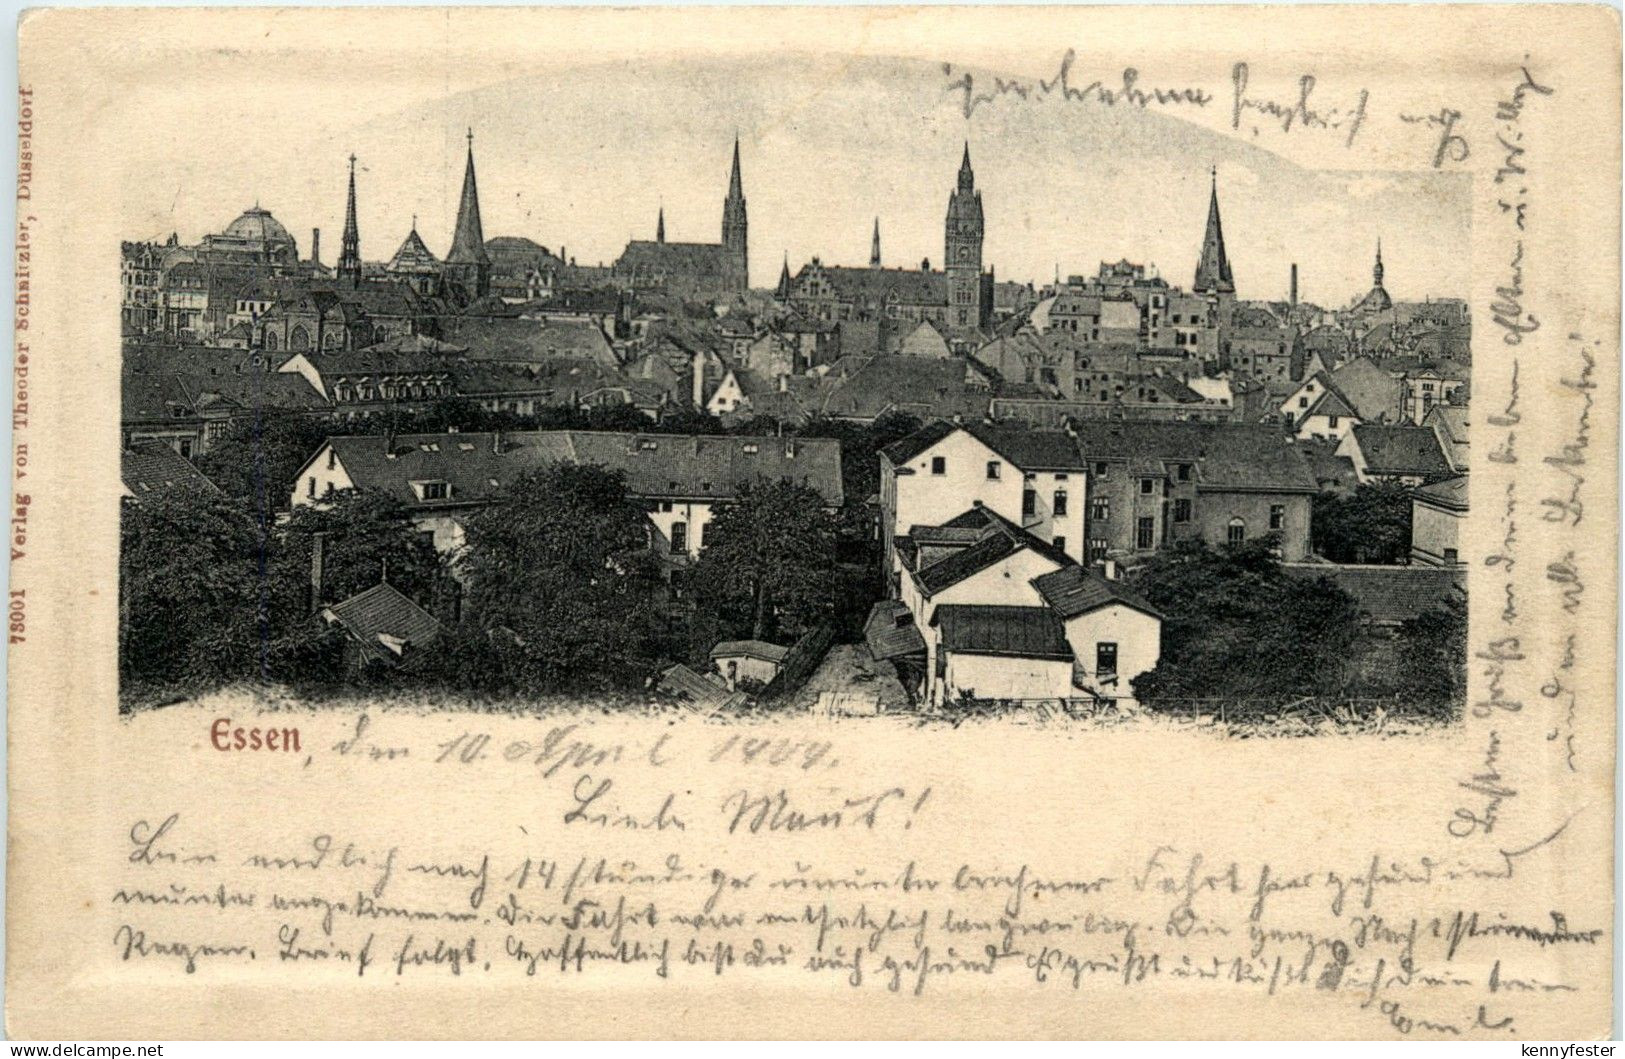 73001 Verlag von Theodor Schnitzler, Düsseldorf.
Essen, den 10. April 1904.
Liebe Maus!
Bin endlich nach 14 stündiger ununterbrochener Fahrt hier gesund und
munter angekommen. Die Fahrt war entsetzlich langweilig. Die ganze Nacht strömender
Regen. Brief folgt. Hoffentlich bist Du auch gesund. Es grüßt und küßt Dich Dein treuer
Emil.
Besten Gruß an deine lieben Eltern u. Willy.
und an alle Bekannte!
kennyfester